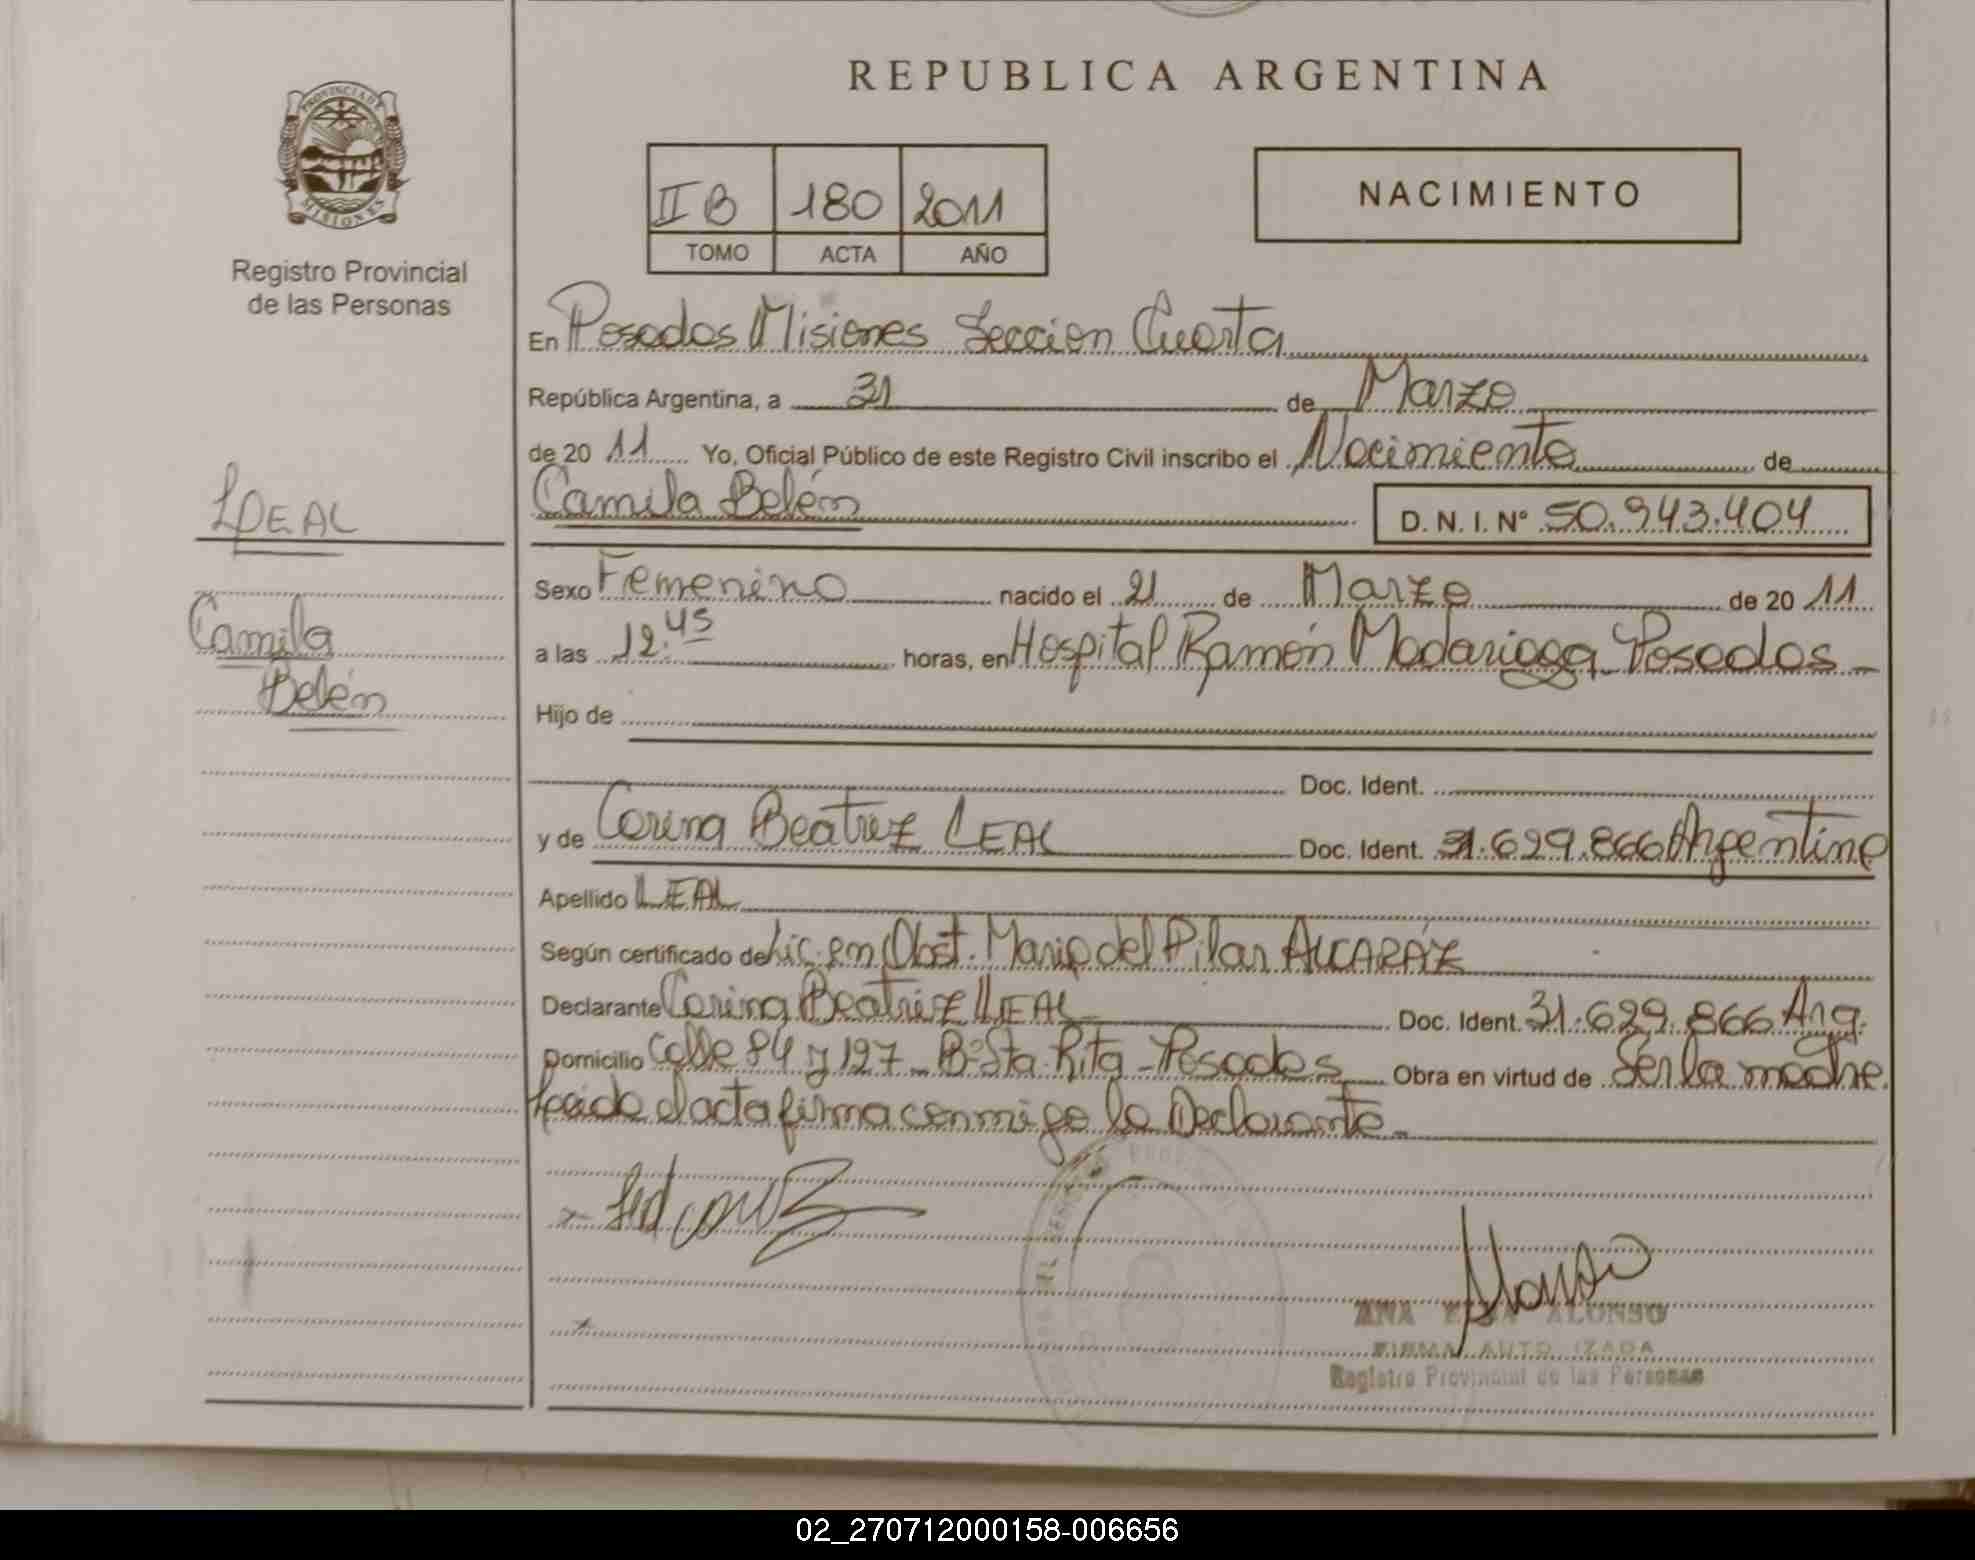 REPUBLICA ARGENTINA
PROVINCIA DE
MISIONES
Registro Provincial
de las Personas
II B 180 2011
TOMO ACTA AÑO
NACIMIENTO
En Posadas Misiones Seccion Cuarta
República Argentina, a 31 de Marzo
de 20 11 Yo, Oficial Público de este Registro Civil inscribo el Nacimiento de
Camila Belén D. N. I. Nº 50.943.404
LEAL
Camila
Belén
Sexo Femenino nacido el 21 de Marzo de 20 11
a las 12.45 horas, en Hospital Ramón Madariaga Posadas
Hijo de
Doc. Ident.
y de Corina Beatriz LEAL Doc. Ident. 31.629.866 Argentina
Apellido LEAL
Según certificado de Lic. en Obst. Maria del Pilar ALCARAZ
Declarante Corina Beatriz LEAL Doc. Ident. 31.629.866 Arg.
Domicilio Calle 84 y 127 Bº Sta. Rita - Posadas Obra en virtud de Ser la madre
Leida el acta firma conmigo la Declarante
ANA ALONSO
FIRMA AUTORIZADA
Registro Provincial de las Personas
02_270712000158-006656